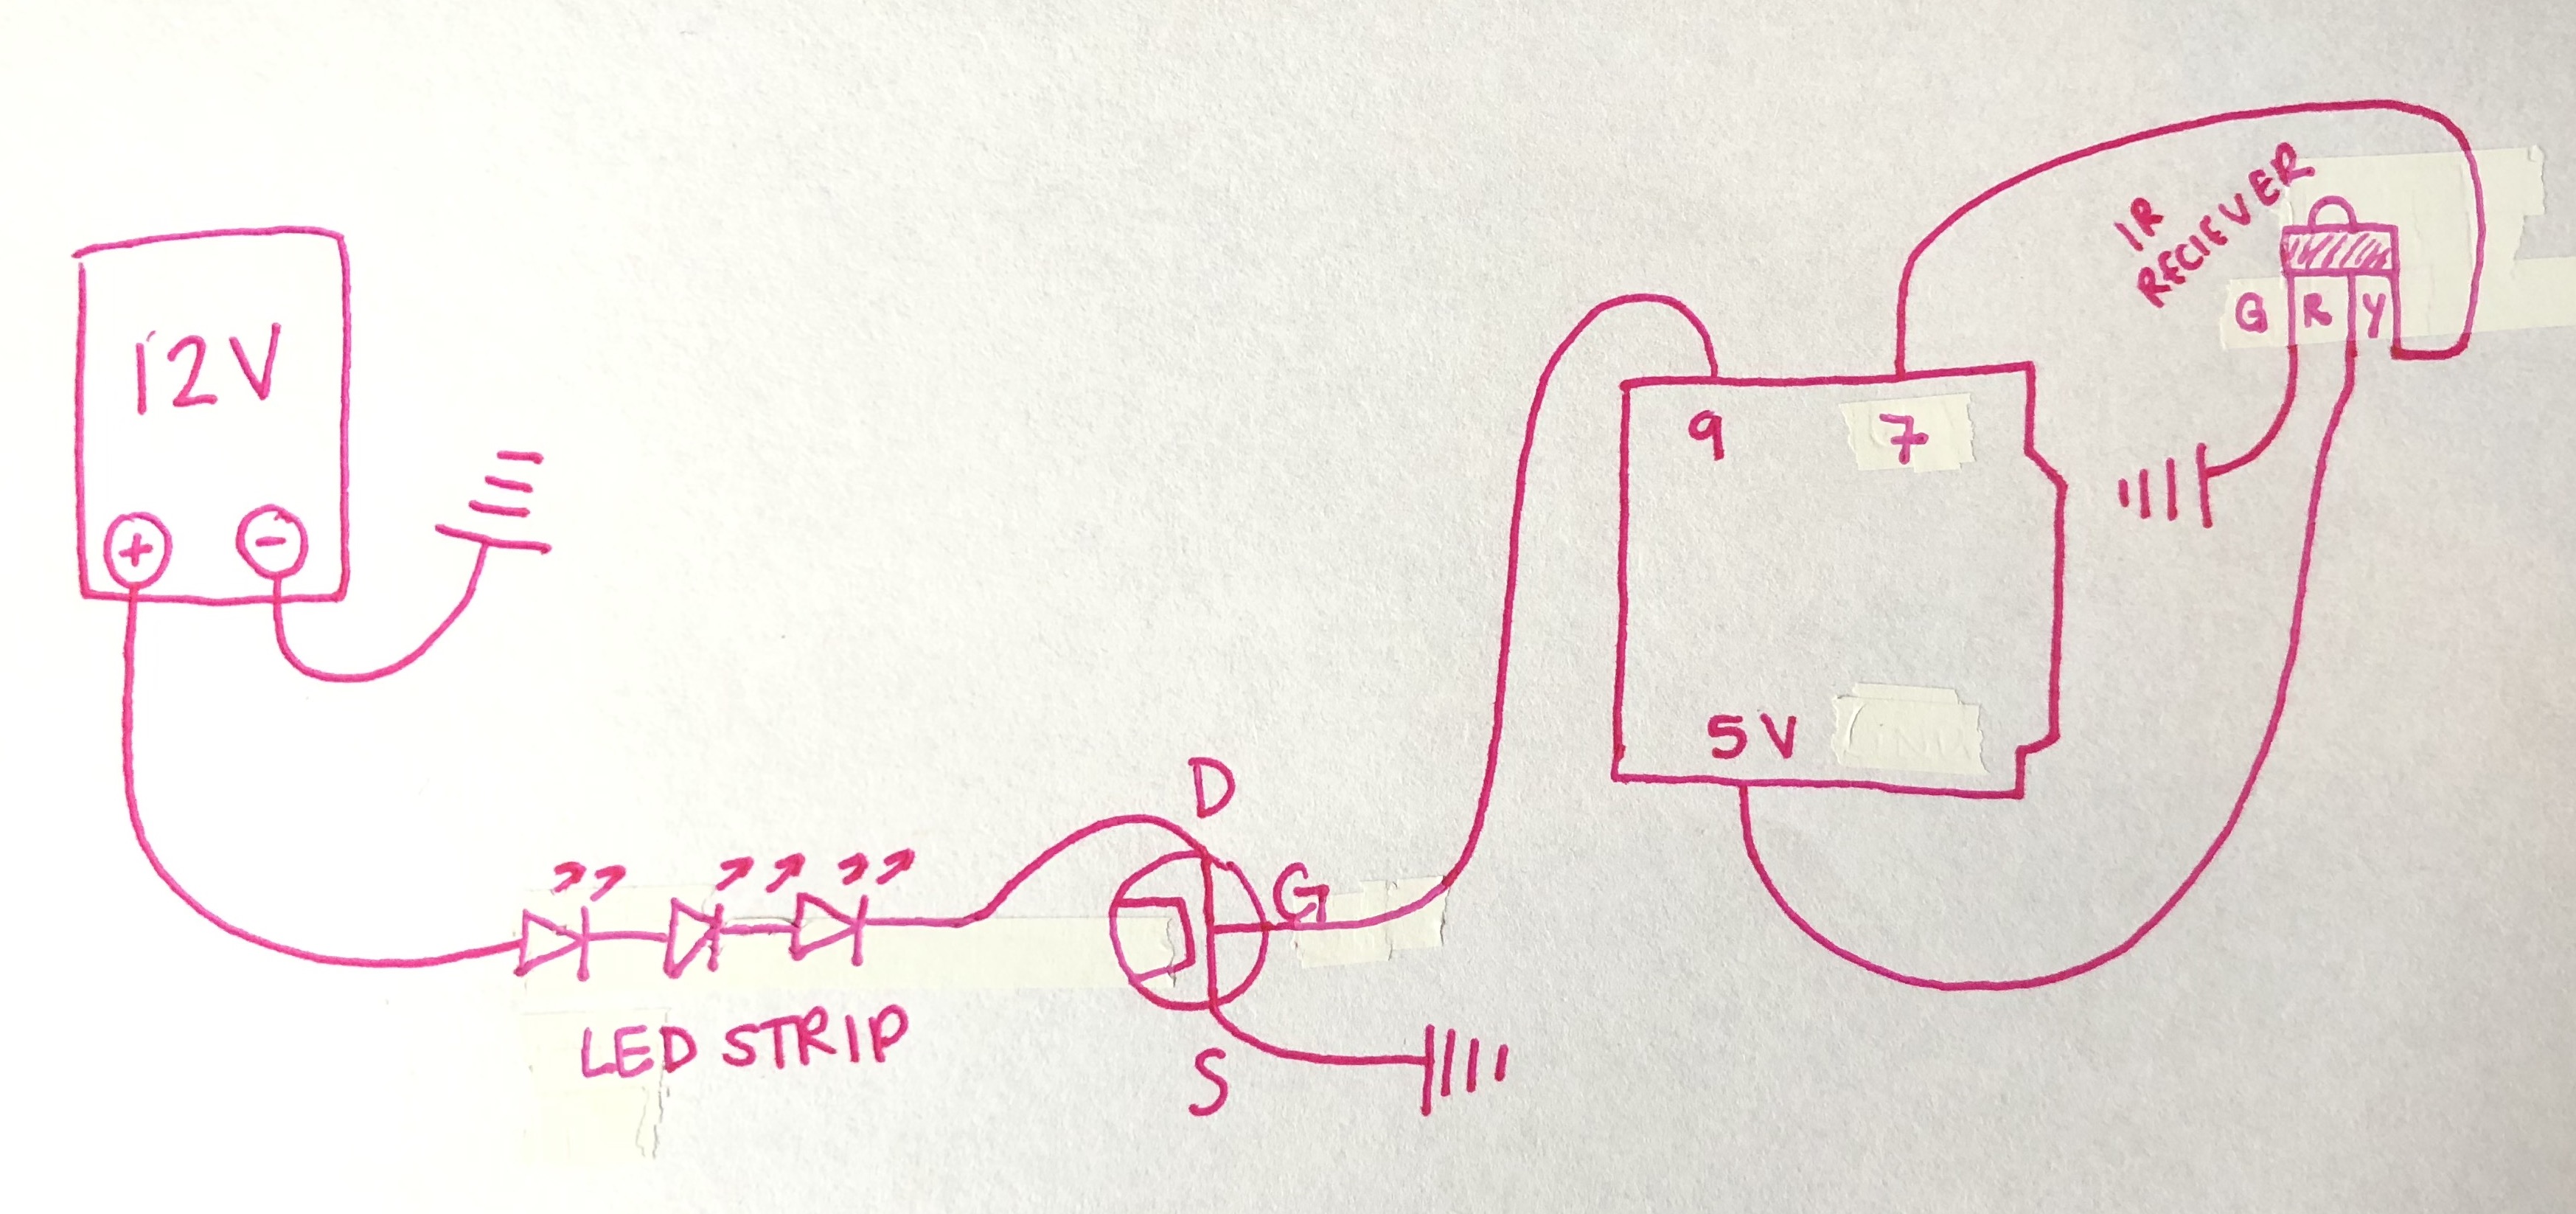 12V
+
-
LED STRIP
D
G
S
9
7
5V
IR
RECIEVER
G R Y